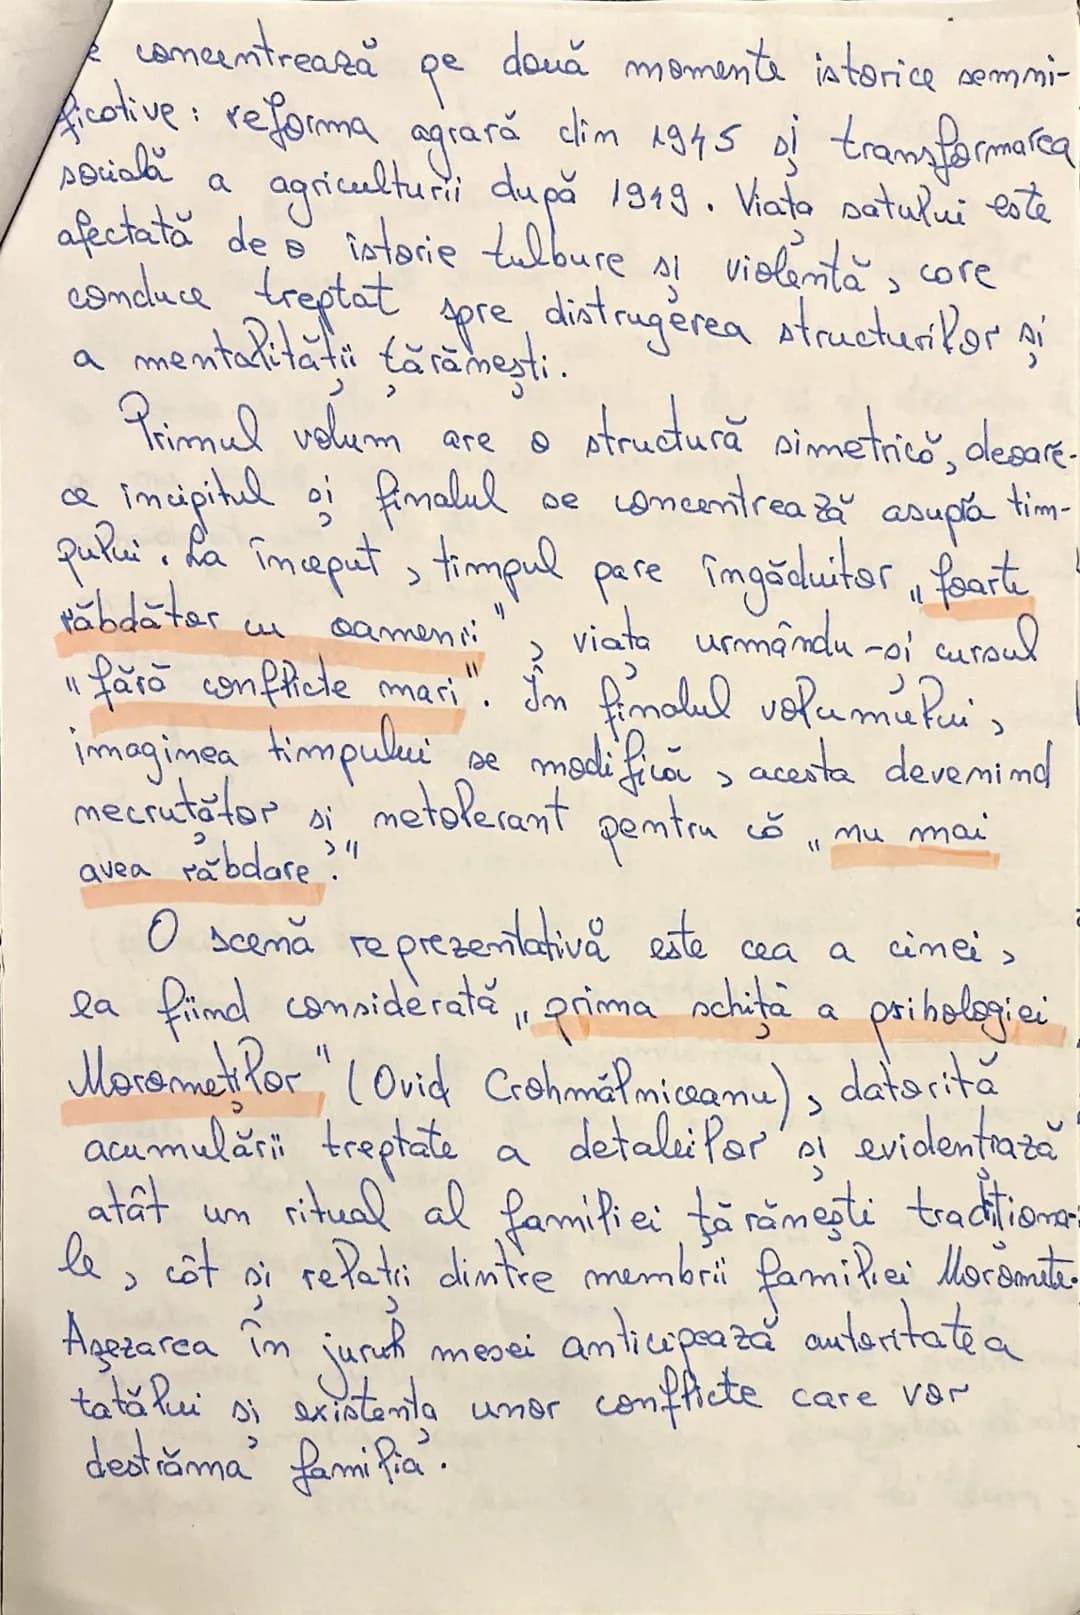 e concentrează pe două momente istorice semni-
ficative: reforma agrară din 1945 și transformarea
socială a agriculturii după 1949. Viața satului este
afectată de o istorie tulbure și violentă, care
conduce treptat spre distrugerea structurilor și
a mentalității țărănești.
Primul volum are o structură simetrică, deoare-
ce incipitul și finalul se concentrează asupra tim-
pului. La început, timpul pare îngăduitor „foarte
răbdător cu oamenii", viața urmându-și cursul
"fără conflicte mari". În finalul volumului,
imaginea timpului se modifică, acesta devenind
necruțător și netolerant pentru că „nu mai
avea răbdare."
O scenă reprezentativă este cea a cinei,
ea fiind considerată „prima schiță a psihologiei
Moromeților" (Ovid Crohmălniceanu), datorită
acumulării treptate a detaleilor și evidențiază
atât un ritual al familiei țărănești tradiționa-
le, cât și relații dintre membrii familiei Moromete.
Așezarea în jurul mesei anticipează autoritatea
tatălui și existența unor conflicte care vor
destrăma familia.